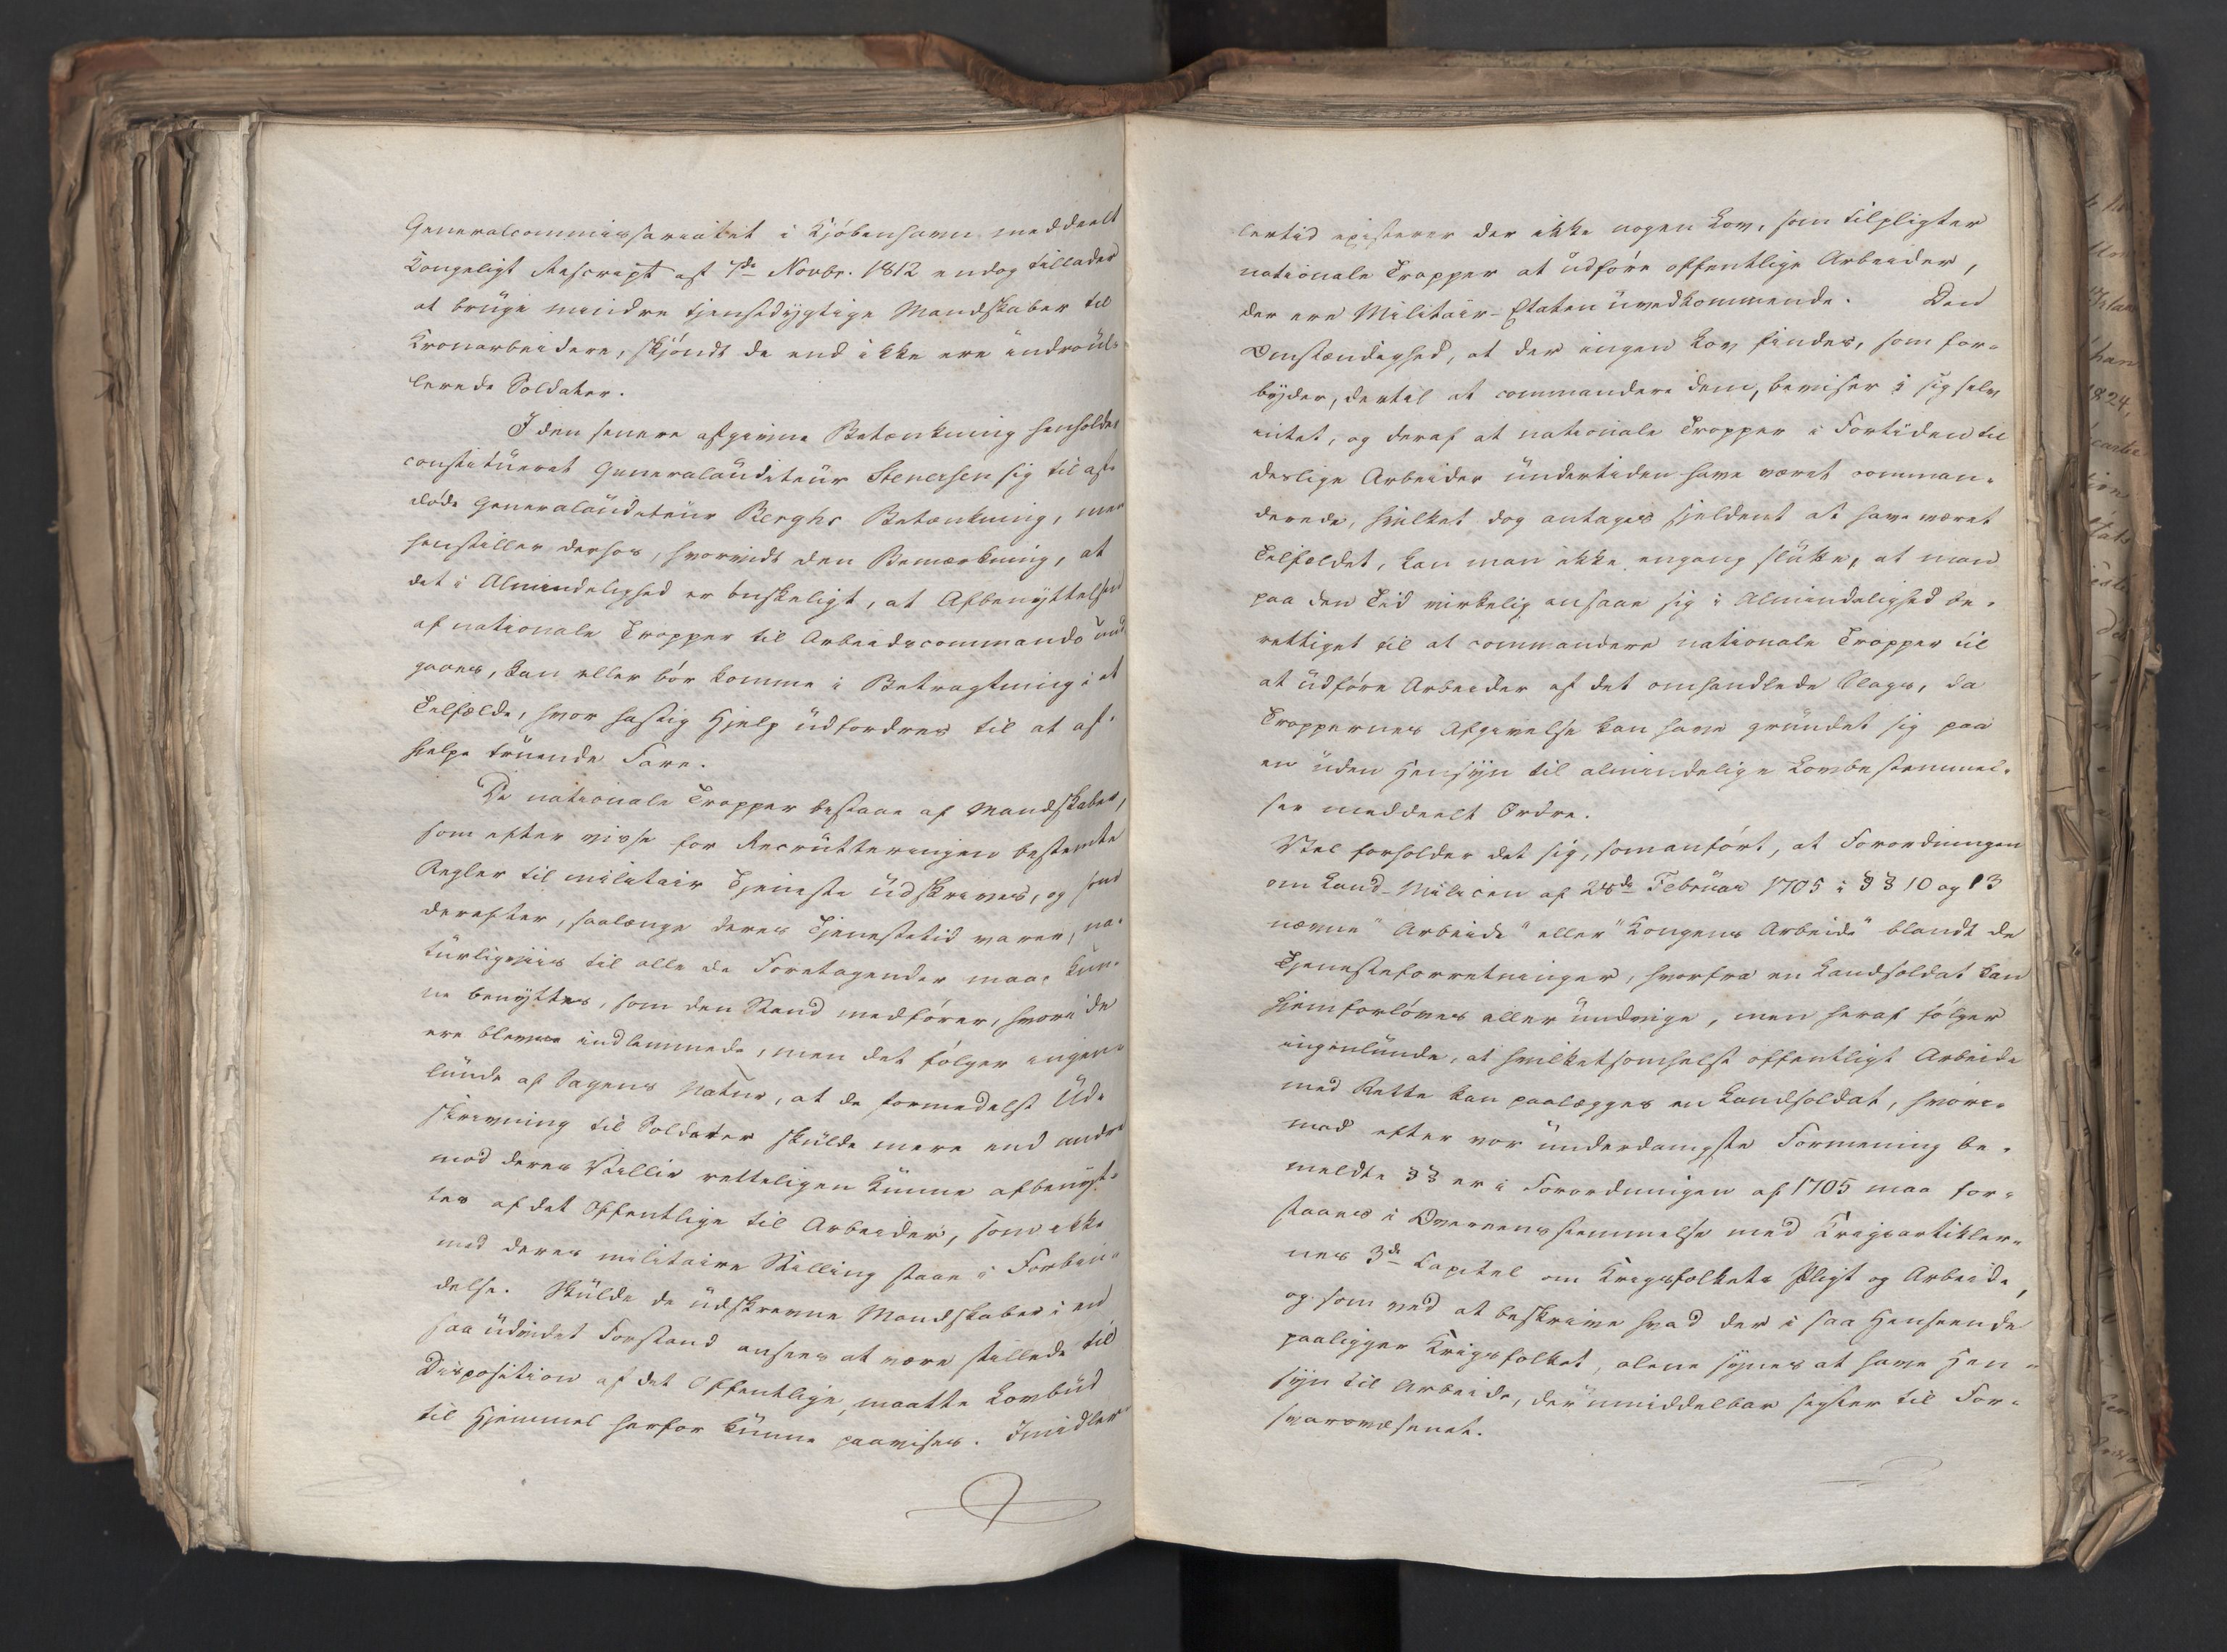 Generalcommissariatet i Kjøbenhavn meddeelt
Kongeligt Rescript af 7de Novbr. 1812 endog tillades
at bruge mindre tjenstdygtige Mandskaber til
Kronarbeidere, skjøndt de end ikke ere indroul-
lerede Soldater.
I den senere afgivne Betænkning henholder
constitueret Generalauditeur Stenersen sig til af-
døde Generalauditeur Berghs Betænkning, men
henstiller derhos, hvorvidt den Bemærkning, at
det i Almindelighed er ønskeligt, at Afbenyttelsen
af nationale Tropper til Arbeidscommando und-
gaaes, kan eller bør komme i Betragtning i et
Tilfælde, hvor hastig Hjelp udfordres til at af-
hjelpe truende Fare.
De nationale Tropper bestaae af Mandskaber,
som efter visse for Recrutteringen bestemte
Regler til militair Tjeneste udskrives, og som
derefter, saalænge deres Tjenestetid varer, na-
turligviis til alle de Foretagender maae kun-
ne benyttes, som den Stand medfører, hvori de
ere blevne indlemmede, men det følger ingen-
lunde af Sagens Natur, at de formedelst Ud-
skrivning til Soldater skulde mere end andre
mod deres Villie retteligen kunne afbenyt-
tes af det Offentlige til Arbeider, som ikke
med deres militaire Stilling staae i Forbin-
delse. Skulde de udskrevne Mandskaber i en
saa udvidet Forstand ansees at være stillede til
Disposition af det Offentlige, maatte Lovbud
til Hjemmel herfor kunne paavises. Imidler-
lertid existerer der ikke nogen Lov, som tilpligter
nationale Tropper at udføre offentlige Arbeider,
der ere Militair-Etaten uvedkommende. Den
Omstændighed, at der ingen Lov findes, som for-
byder, dertil at commandere dem, beviser i sig selv
intet, og deraf at nationale Tropper i Fortiden til
deslige Arbeider undertiden have været comman-
derede, hvilket dog antages sjeldent at have været
Tilfældet, kan man ikke engang slutte, at man
paa den Tid virkelig ansaae sig i Almindelighed be-
rettiget til at commandere nationale Tropper til
at udføre Arbeider af det omhandlede Slags, da
Troppernes Afgivelse kan have grundet sig paa
en uden Hensyn til almindelige Lovbestemmel-
ser meddeelt Ordre.
Vel forholder det sig, som anført, at Forordningen
om Land-Milicen af 28de Februar 1705 i §§ 10 og 13
nævne "Arbeide" eller "Kongens Arbeide" blandt de
Tjenesteforretninger, hvorfra en Landsoldat kan
hjemforløves eller undvige, men heraf følger
ingenlunde, at hvilketsomhelst offentligt Arbeide
med Rette kan paalægges en Landsoldat, hvori-
mod efter vor underdanigste Formening be-
meldte §§er i Forordningen af 1705 maa for-
staaes i Overeensstemmelse med Krigsartikler-
nes 3de Capitel om Krigsfolkets Pligt og Arbeide,
og som ved at beskrive hvad der i saa Henseende
paaligger Krigsfolket, alene synes at have Hen-
syn til Arbeide, der umiddelbar sigter til For-
svarsvæsenet.